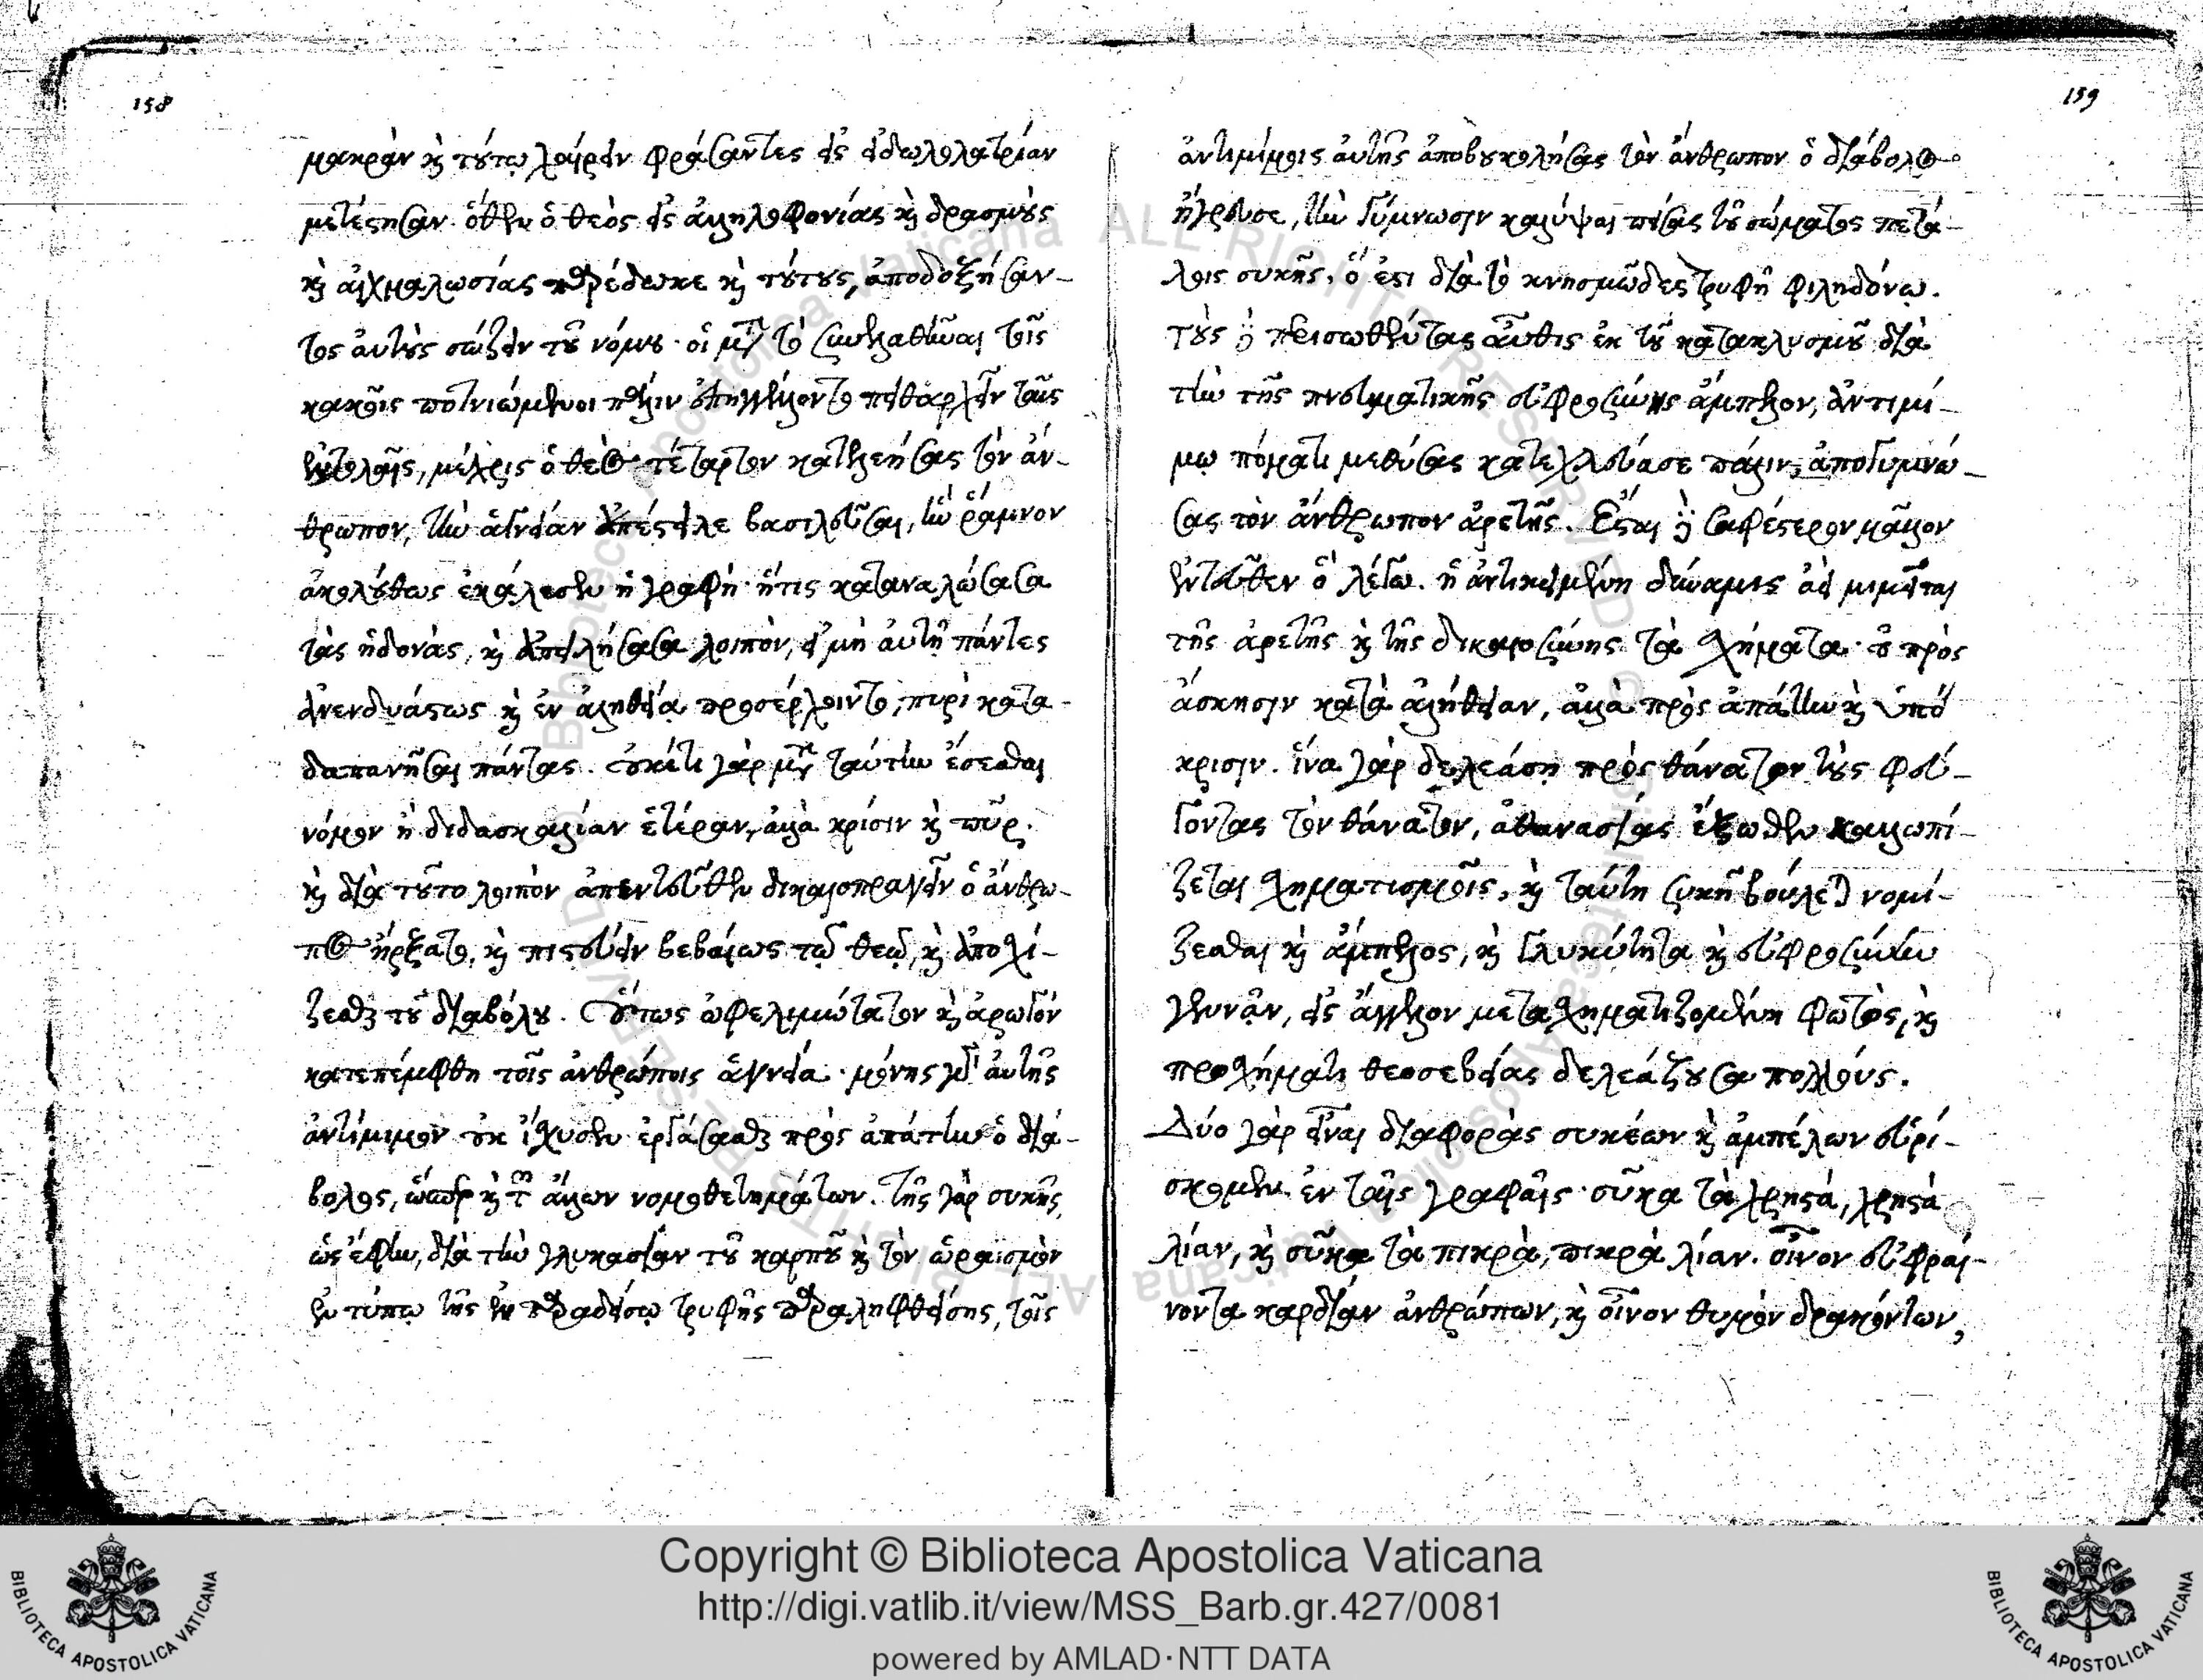 158
μακρὰν καὶ τούτῳ χαίρειν φράσαντες εἰς εἰδωλολατρίαν
μετέστησαν· ὅθεν ὁ θεὸς εἰς ἀλληλοφονίας καὶ δρασμοὺς
καὶ αἰχμαλωσίας παρέδωκε καὶ τούτους, ἀποδοξήσαν-
τος αὐτοὺς σώζειν τοῦ νόμου· οἱ μετὰ τὸ
κακοῖς ποτνιώμενοι πάλιν ἐπηγγέλλοντο πειθαρχεῖν ταῖς
ἐντολαῖς, μέχρις ὁ θεὸς τέταρτον κατελεήσας τὸν ἄν-
θρωπον, τὴν ἁγνείαν ἀπέστειλε βασιλεῦσαι, ἣν ῥάμνον
ἀκολούθως ἐκάλεσεν ἡ γραφή· ἥτις καταναλώσασα
τὰς ἡδονάς, καὶ ἀπειλήσασα λοιπὸν, εἰ μὴ αὐτῇ πάντες
ἀνενδυάστως καὶ ἐν ἀληθείᾳ προσέρχοιντο, πυρὶ κατα-
δαπανῆσαι πάντας. οὐκέτι γὰρ μετὰ ταύτην ἔσεσθαι
νόμον ἢ διδασκαλίαν ἑτέραν, ἀλλὰ κρίσιν καὶ πῦρ.
καὶ διὰ τοῦτο λοιπὸν ἀπεντεῦθεν δικαιοπραγεῖν ὁ ἄνθρω-
πος ἤρξατο, καὶ πιστεύειν βεβαίως τῷ θεῷ, καὶ ἀποχί-
ζεσθαι τοῦ διαβόλου. Οὕτως ὠφελιμώτατον καὶ ἀρωγὸν
κατεπέμφθη τοῖς ἀνθρώποις ἁγνεία· μόνης γὰρ αὐτῆς
ἀντίμιμον οὐκ ἴσχυσεν ἐργάσασθαι πρὸς ἀπάτην ὁ διά-
βολος, ὥσπερ καὶ τῶν ἄλλων νομοθετημάτων. τῆς γὰρ συκῆς,
ὡς ἔφην, διὰ τὴν γλυκασίαν τοῦ καρποῦ καὶ τὸν ὡραϊσμὸν
ἐν τύπῳ τῆς ἐν παραδείσῳ τρυφῆς παραληφθείσης, τοῖς
159
ἀντιμίμοις αὐτῆς ἀποβουκολήσας τὸν ἄνθρωπον ὁ διάβολος
ἤγρευσε, τὴν γύμνωσιν καλύψαι πείσας τοῦ σώματος πετά-
λοις συκῆς, ὅ ἐστι διὰ τὸ κνησμῶδες τρυφῇ φιληδόνῳ.
τοὺς δὲ περισωθέντας αὖθις ἐκ τοῦ κατακλυσμοῦ διὰ
τὴν τῆς πνευματικῆς εὐφροσύνης ἄμπελον, ἀντιμί-
μῳ πόματι μεθύσας κατεχλεύασε πάλιν, ἀπογυμνώ-
σας τὸν ἄνθρωπον ἀρετῆς. Ἔσται δὲ σαφέστερον μᾶλλον
ἐνταῦθεν ὃ λέγω. ἡ ἀντικειμένη δύναμις ἀεὶ μιμεῖται
τῆς ἀρετῆς καὶ τῆς δικαιοσύνης τὰ σχήματα· οὐ πρὸς
ἄσκησιν κατὰ ἀλήθειαν, ἀλλὰ πρὸς ἀπάτην καὶ ὑπό
κρισιν. ἵνα γὰρ δελεάσῃ πρὸς θάνατον τοὺς φεύ-
γοντας τὸν θάνατον, ἀθανασίας ἔξωθεν καλλωπί-
ζεται σχηματισμοῖς, καὶ ταύτῃ συκῆ βούλεται νομί-
ζεσθαι καὶ ἄμπελος, καὶ γλυκύτητα καὶ εὐφροσύνην
γεννᾷν, εἰς ἄγγελον μετασχηματιζομένη φωτὸς, καὶ
προσχήματι θεοσεβείας δελεάζουσα πολλούς.
Δύο γὰρ εἶναι διαφορὰς συκέων καὶ ἀμπέλων εὑρί-
σκομεν ἐν ταῖς γραφαῖς· σῦκα τὰ χρηστά, χρηστά
λίαν, καὶ σῦκα τὰ πικρὰ, πικρὰ λίαν. οἶνον εὐφραί-
νοντα καρδίαν ἀνθρώπων, καὶ οἶνον θυμὸν δρακόντων,
Copyright © Biblioteca Apostolica Vaticana
http://digi.vatlib.it/view/MSS_Barb.gr.427/0081
powered by AMLAD·NTT DATA
BIBLIOTECA APOSTOLICA VATICANA
BIBLIOTECA APOSTOLICA VATICANA